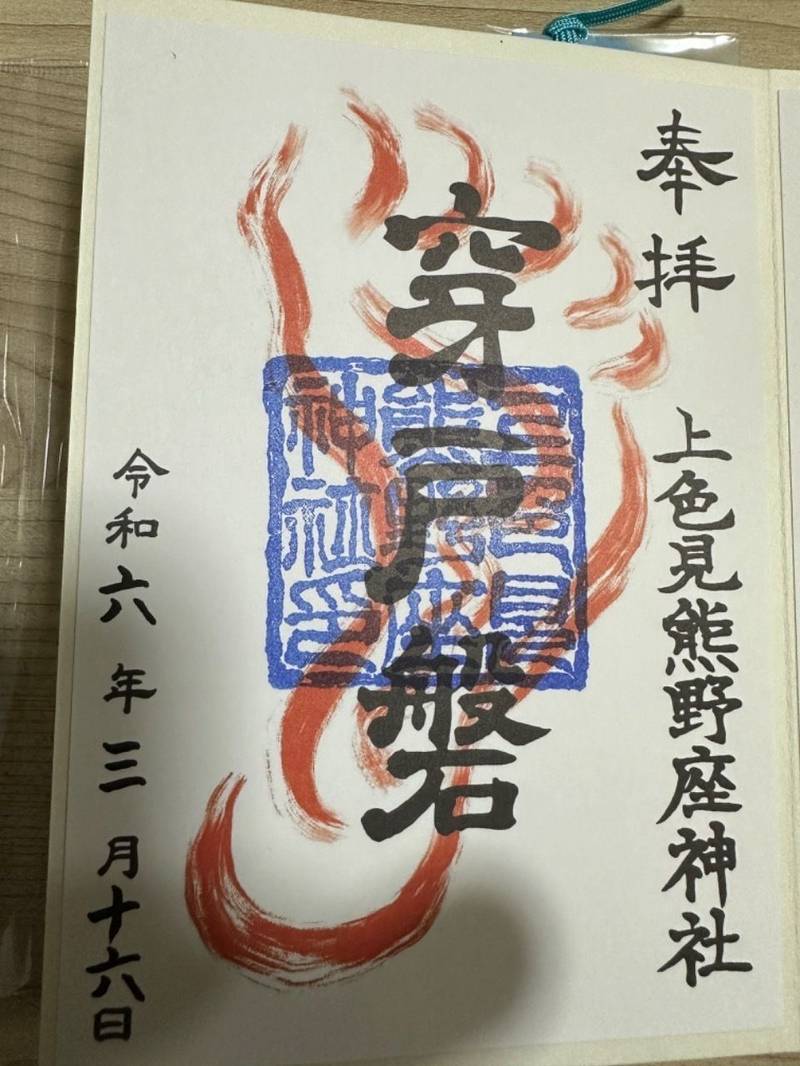 奉拝
上色見熊野座神社
穿戸磐
上色見
熊野座
神社印
令和六年三月十六日